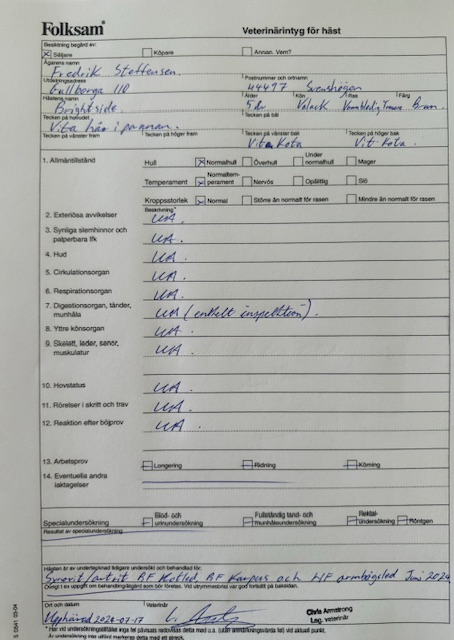 Folksam
Veterinärintyg för häst
Besiktning begärd av:
Säljare Köpare Annan. Vem?
Ägarens namn
Fredrik Steffensen.
Utdelningsadress Postnummer och ortnamn
Gullberga 110 44497 Svenshögen
Hästens namn Ålder Kön Ras Färg
Brightside. 5 år Valack Varmblodig Travare Brun.
Tecken på huvudet Tecken på bål
Vita hår i pannan.
Tecken på vänster fram Tecken på höger fram Tecken på vänster bak Tecken på höger bak
Vit Kota Vit Kota.
1. Allmäntillstånd Hull Normalhull Överhull Under normalhull Mager
Temperament Normaltemperament Nervös Opålitlig Slö
Kroppsstorlek Normal Större än normalt för rasen Mindre än normalt för rasen
Beskrivning*
2. Exteriösa avvikelser UA.
3. Synliga slemhinnor och palperbara lfk UA.
4. Hud UA.
5. Cirkulationsorgan UA.
6. Respirationsorgan UA.
7. Digestionsorgan, tänder, munhåla UA (enkelt inspektion).
8. Yttre könsorgan UA.
9. Skelett, leder, senor, muskulatur UA.
10. Hovstatus UA.
11. Rörelser i skritt och trav UA.
12. Reaktion efter böjprov UA.
13. Arbetsprov Longering Ridning Körning
14. Eventuella andra iakttagelser
Specialundersökning Blod- och urinundersökning Fullständig tand- och munhåleundersökning Rektalundersökning Röntgen
Resultat av specialundersökning
Hästen är av undertecknad tidigare undersökt och behandlad för:
Synovit/artrit BF Kotled, BF Karpus och HF armbågsled Juni 2024
Ort och datum Veterinär
2024-07-17
Chris Armstrong
Leg. veterinär